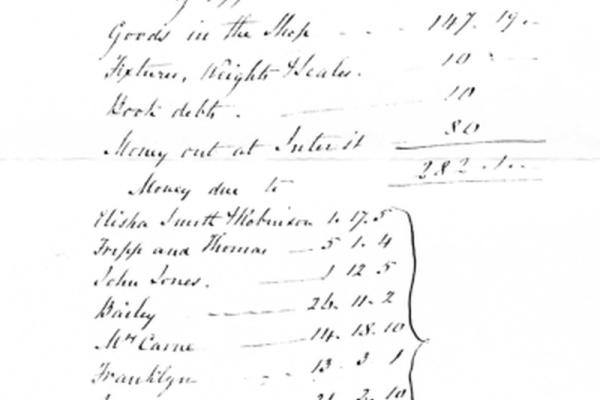 Goods in the Shop - - - 147. 19. -
Fixtures, Weights & Scales. 10 - -
Book debts. 10
Money out at Interest 80
282. 1. -
Money due to
Elisha Smith & Robinson 1. 17. 5
Tripp and Thomas — 5 1. 4
John Jones. — 1 12 5
Bailey — 24. 11. 2
Mrs Carne — 14. 18. 10
Franklyn - - 13. 3 1
21. 2. 10